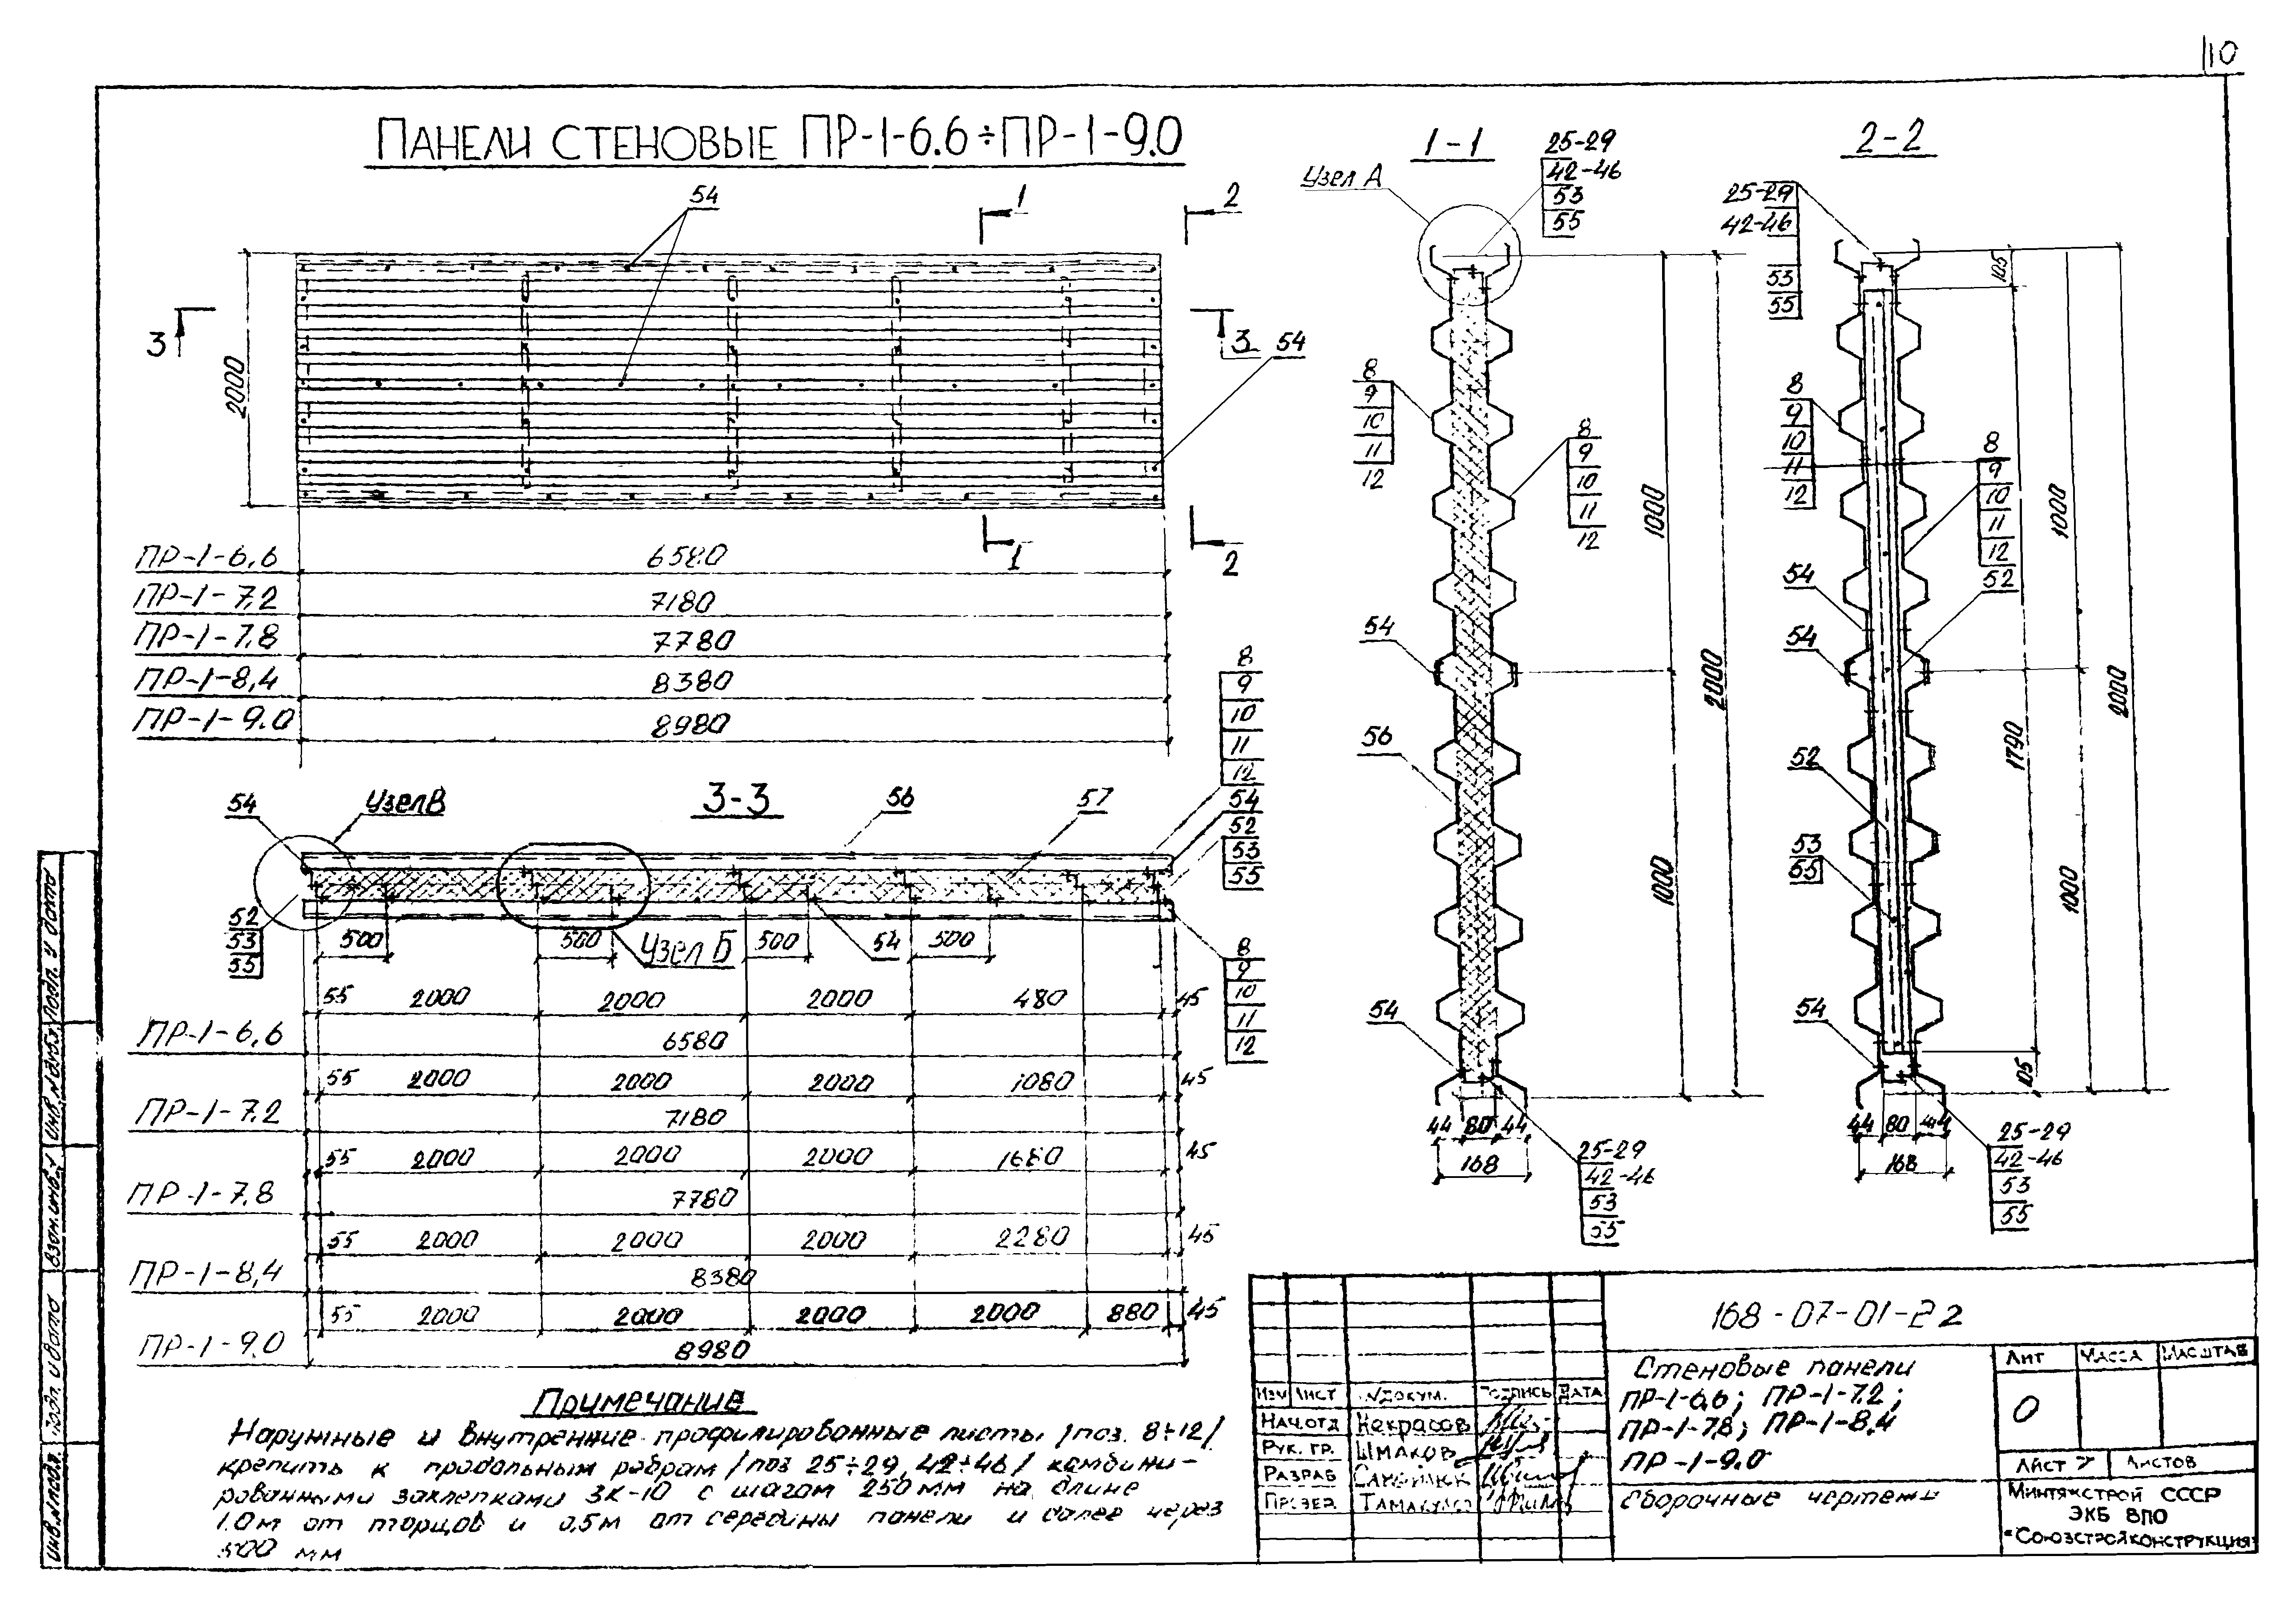 110
ПАНЕЛИ СТЕНОВЫЕ ПР-1-6.6÷ПР-1-9.0
54
1
2
3
3
54
2000
1
2
ПР-1-6,6
6580
ПР-1-7,2
7180
ПР-1-7,8
7780
ПР-1-8,4
8380
ПР-1-9.0
8980
8
9
10
11
12
54
52
53
55
54
Узел В
3-3
56
57
52
53
55
500
500
Узел Б
500
54
500
8
9
10
11
12
55 2000 2000 2000 480 45
ПР-1-6,6
6580
55 2000 2000 2000 1080 45
ПР-1-7.2
7180
55 2000 2000 2000 1680 45
ПР-1-7,8
7780
55 2000 2000 2000 2280 45
ПР-1-8,4
8380
55 2000 2000 2000 2000 880 45
ПР-1-9.0
8980
Примечание
Наружные и внутренние профилированные листы /поз. 8÷12/
крепить к продольным ребрам /поз 25÷29, 42÷46/ комбини-
рованными заклепками ЗК-10 с шагом 250мм на длине
1.0м от торцов и 0,5м от середины панели и далее через
500 мм
1-1
Узел А
25-29
42-46
53
55
8
9
10
11
12
8
9
10
11
12
54
56
54
1000
1000
2000
44 80 44
168
25-29
42-46
53
55
2-2
25-29
42-46
53
55
8
9
10
11
12
8
9
10
11
12
52
54
54
52
53
55
54
105
1000
1790
2000
1000
105
44 80 44
168
25-29
42-46
53
55
168-07-01-22
Стеновые панели
ПР-1-6,6; ПР-1-7.2;
ПР-1-7,8; ПР-1-8.4
ПР-1-9.0
Сборочные чертежи
Лит Масса Масштаб
О
Лист 7 Листов
Минтяжстрой СССР
ЭКБ ВПО
"Союзстройконструкция"
Изм Лист №докум. Подпись Дата
Нач.отд Некрасов
Рук. гр. Шмаков
Разраб
Провер
Инв.№подл. Подп. и дата Взам.инв.№ Инв.№дубл. Подп. и дата